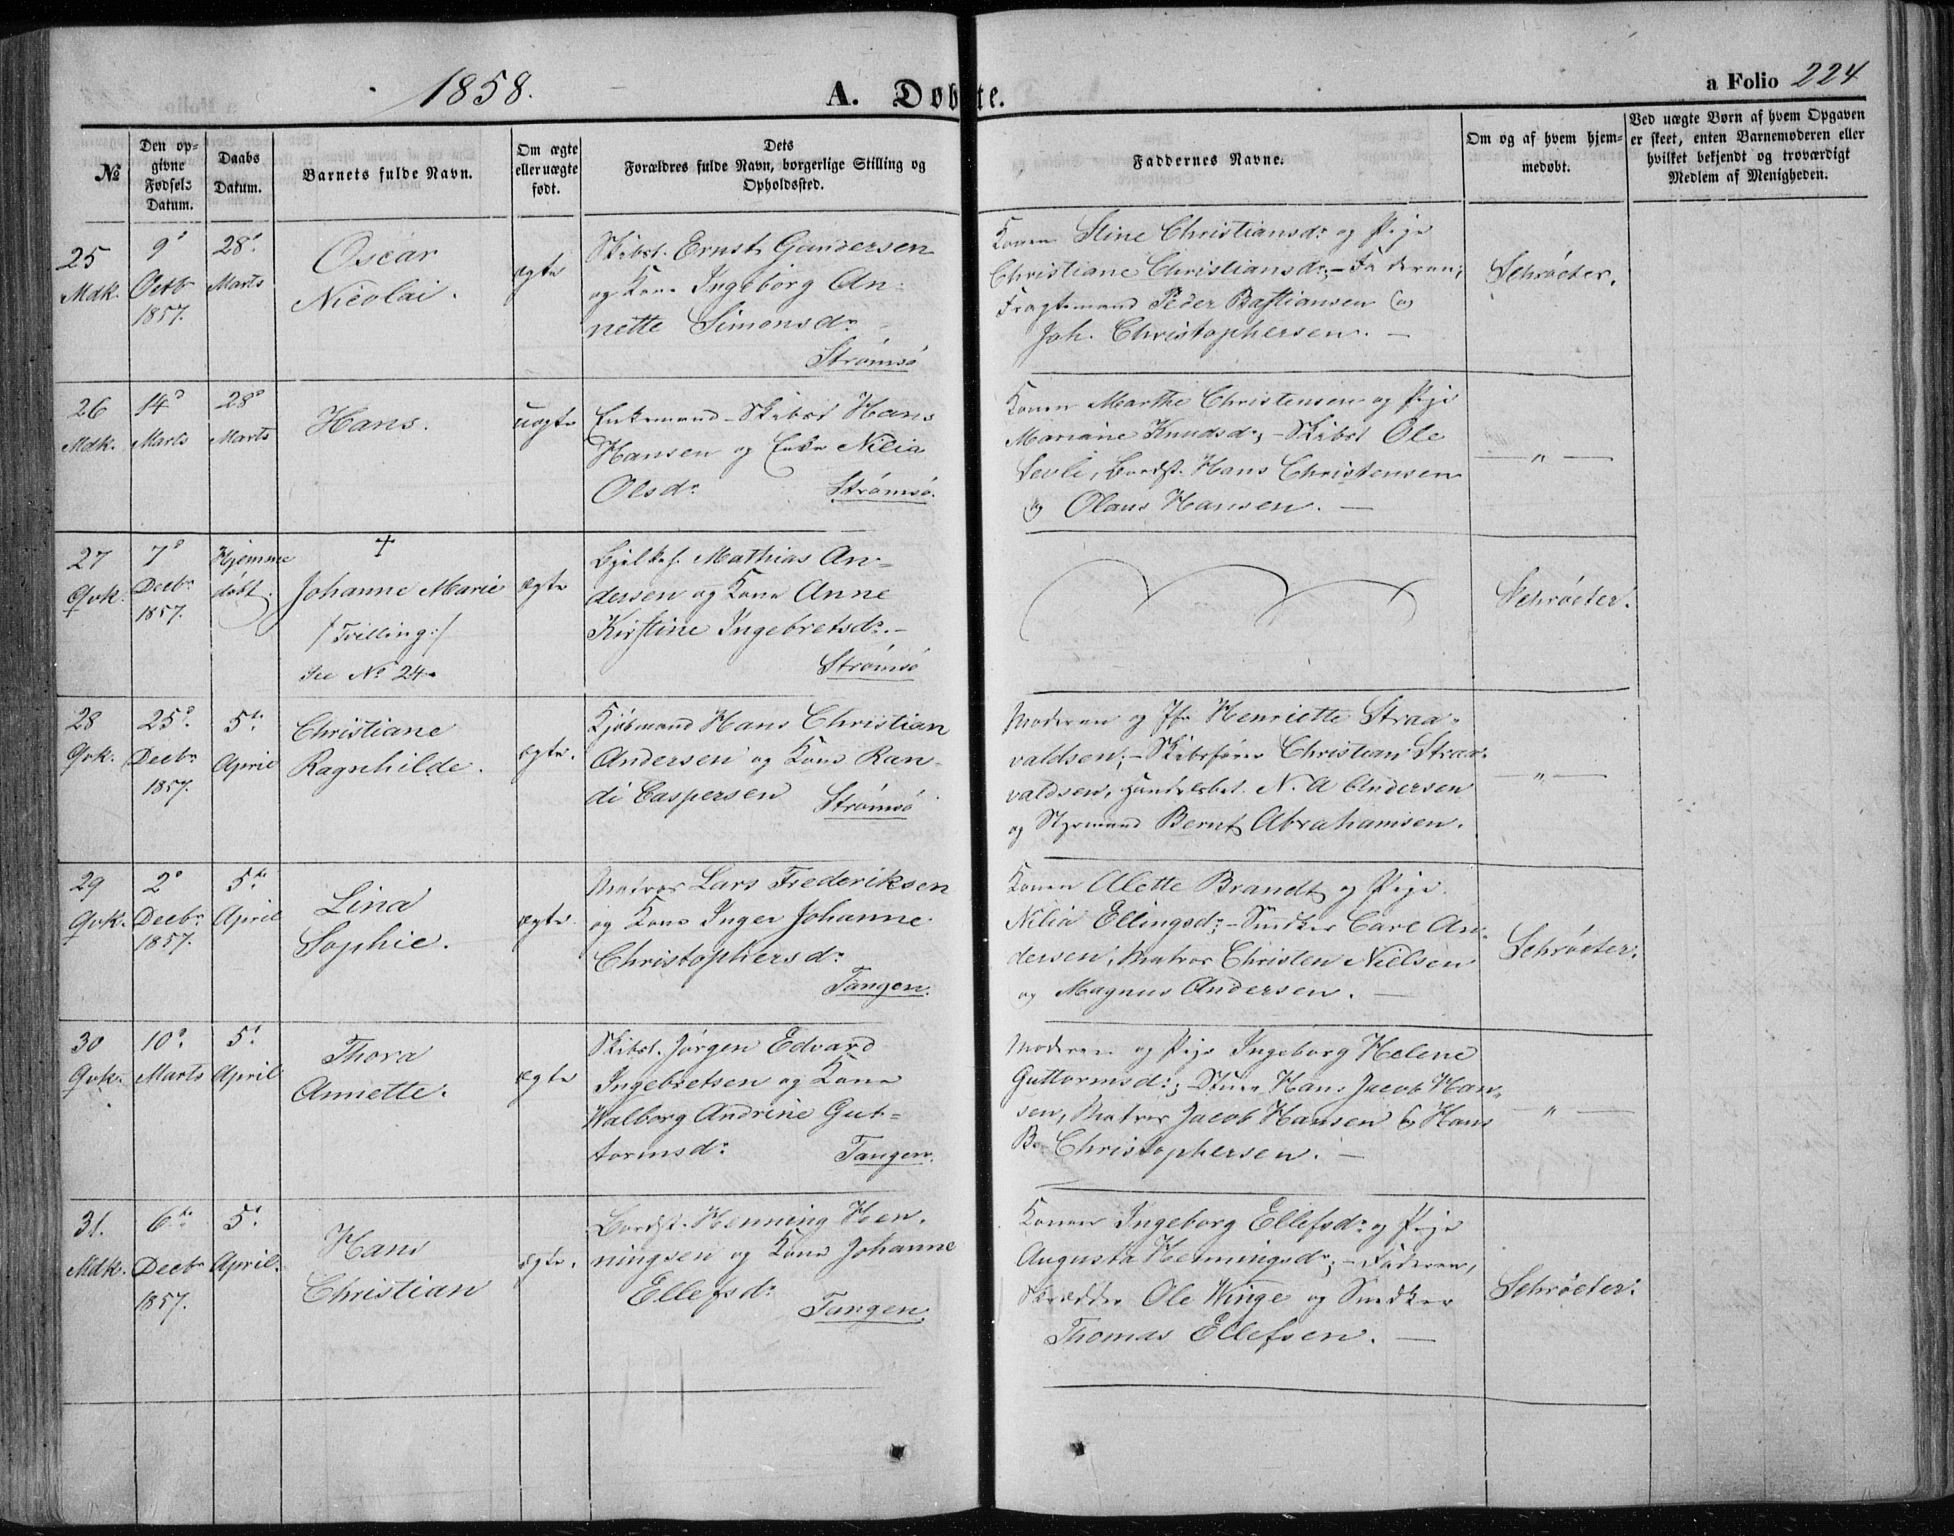 1858.
A. Døbte.
a Folio 224
№
Den opgivne Fødsels Datum.
Daabs Datum.
Barnets fulde Navn.
Om ægte eller uægte født.
Dets Forældres fulde Navn, borgerlige Stilling og Opholdssted.
Faddernes Navne.
Om og af hvem hjemmedøbt.
Ved uægte Børn af hvem Opgaven er skeet, enten Barnemoderen eller hvilket bekjendt og troværdigt Medlem af Menigheden.
25
Mdk.
9de
Octbr
1857.
28de
Marts
Oscar
Nicolai.
ægte
Skibst. Ernst Gundersen
og Kone Ingeborg An-
nette Simonsdr
Strømsø
Konen Stine Christiansdr og Pige
Christiane Christiansdr; - Faderen,
Fragtemand Peder Bastiansen og
Joh. Christophersen. -
Schrøeter.
26
Mdk.
14de
Marts
28de
Marts
Hans.
uægte
Enkemand - Skibst Hans
Hansen og Enke Nilia
Olsdr
Strømsø.
Konen Marthe Christensen og Pige
Mariane Knudsdr; - Skibst Ole
Hans Christensen
og Olaus Hansen. -
— " —
27
Qvk.
7de
Decbr
1857.
Hjemme
døbt.
+
Johanne Marie
/Trilling:/
See No 24.
ægte
Mathias An-
dersen og Kone Anne
Kirstine Ingebretsdr. -
Strømsø
Schrøeter.
28
Qvk.
25de
Decbr
1857.
5te
April
Christiane
Ragnhilde.
ægte.
Kjøbmand Hans Christian
Andersen og Kone Ran-
di Caspersen
Strømsø
Moderen og Jfr Henriette Straa-
valdsen; - Skibsfører Christian Straa-
valdsen, Handelsbet. N. A Andersen
og Styrmand Bernt Abrahamsen.
— " —
29
Qvk.
2de
Decbr
1857.
5te
April
Lina
Sophie.
ægte.
Matros Lars Frederiksen
og Kone Inger Johanne
Christophersdr
Tangen.
Konen Alette Brandt og Pige
Nilia Ellingsdr; - Snedker Carl An-
dersen, Matros Christen Nielsen
og Magnus Andersen. -
Schrøeter.
30
Qvk.
10de
Marts
5te
April
Thora
Annette.
ægte
Skibst. Jørgen Edvard
Ingebretsen og Kone
Walborg Andrine Gut-
tormsdr
Tangen.
Moderen og Pige Ingeborg Helene
Guttormsdr; - Hans Jacob Han-
sen, Matros Jacob Hansen og Hans
Christophersen. -
— " —
31.
Mdk.
6te
Decbr
1857.
5te
April.
Hans
Christian
ægte.
Bordst. Henning Hen-
ningsen og Kone Johanne
Ellefsdr
Tangen.
Konen Ingeborg Ellefsdr og Pige
Augusta Henningsdr; - Faderen,
Skrædder Ole Winge og Snedker
Thomas Ellefsen. -
Schrøeter.